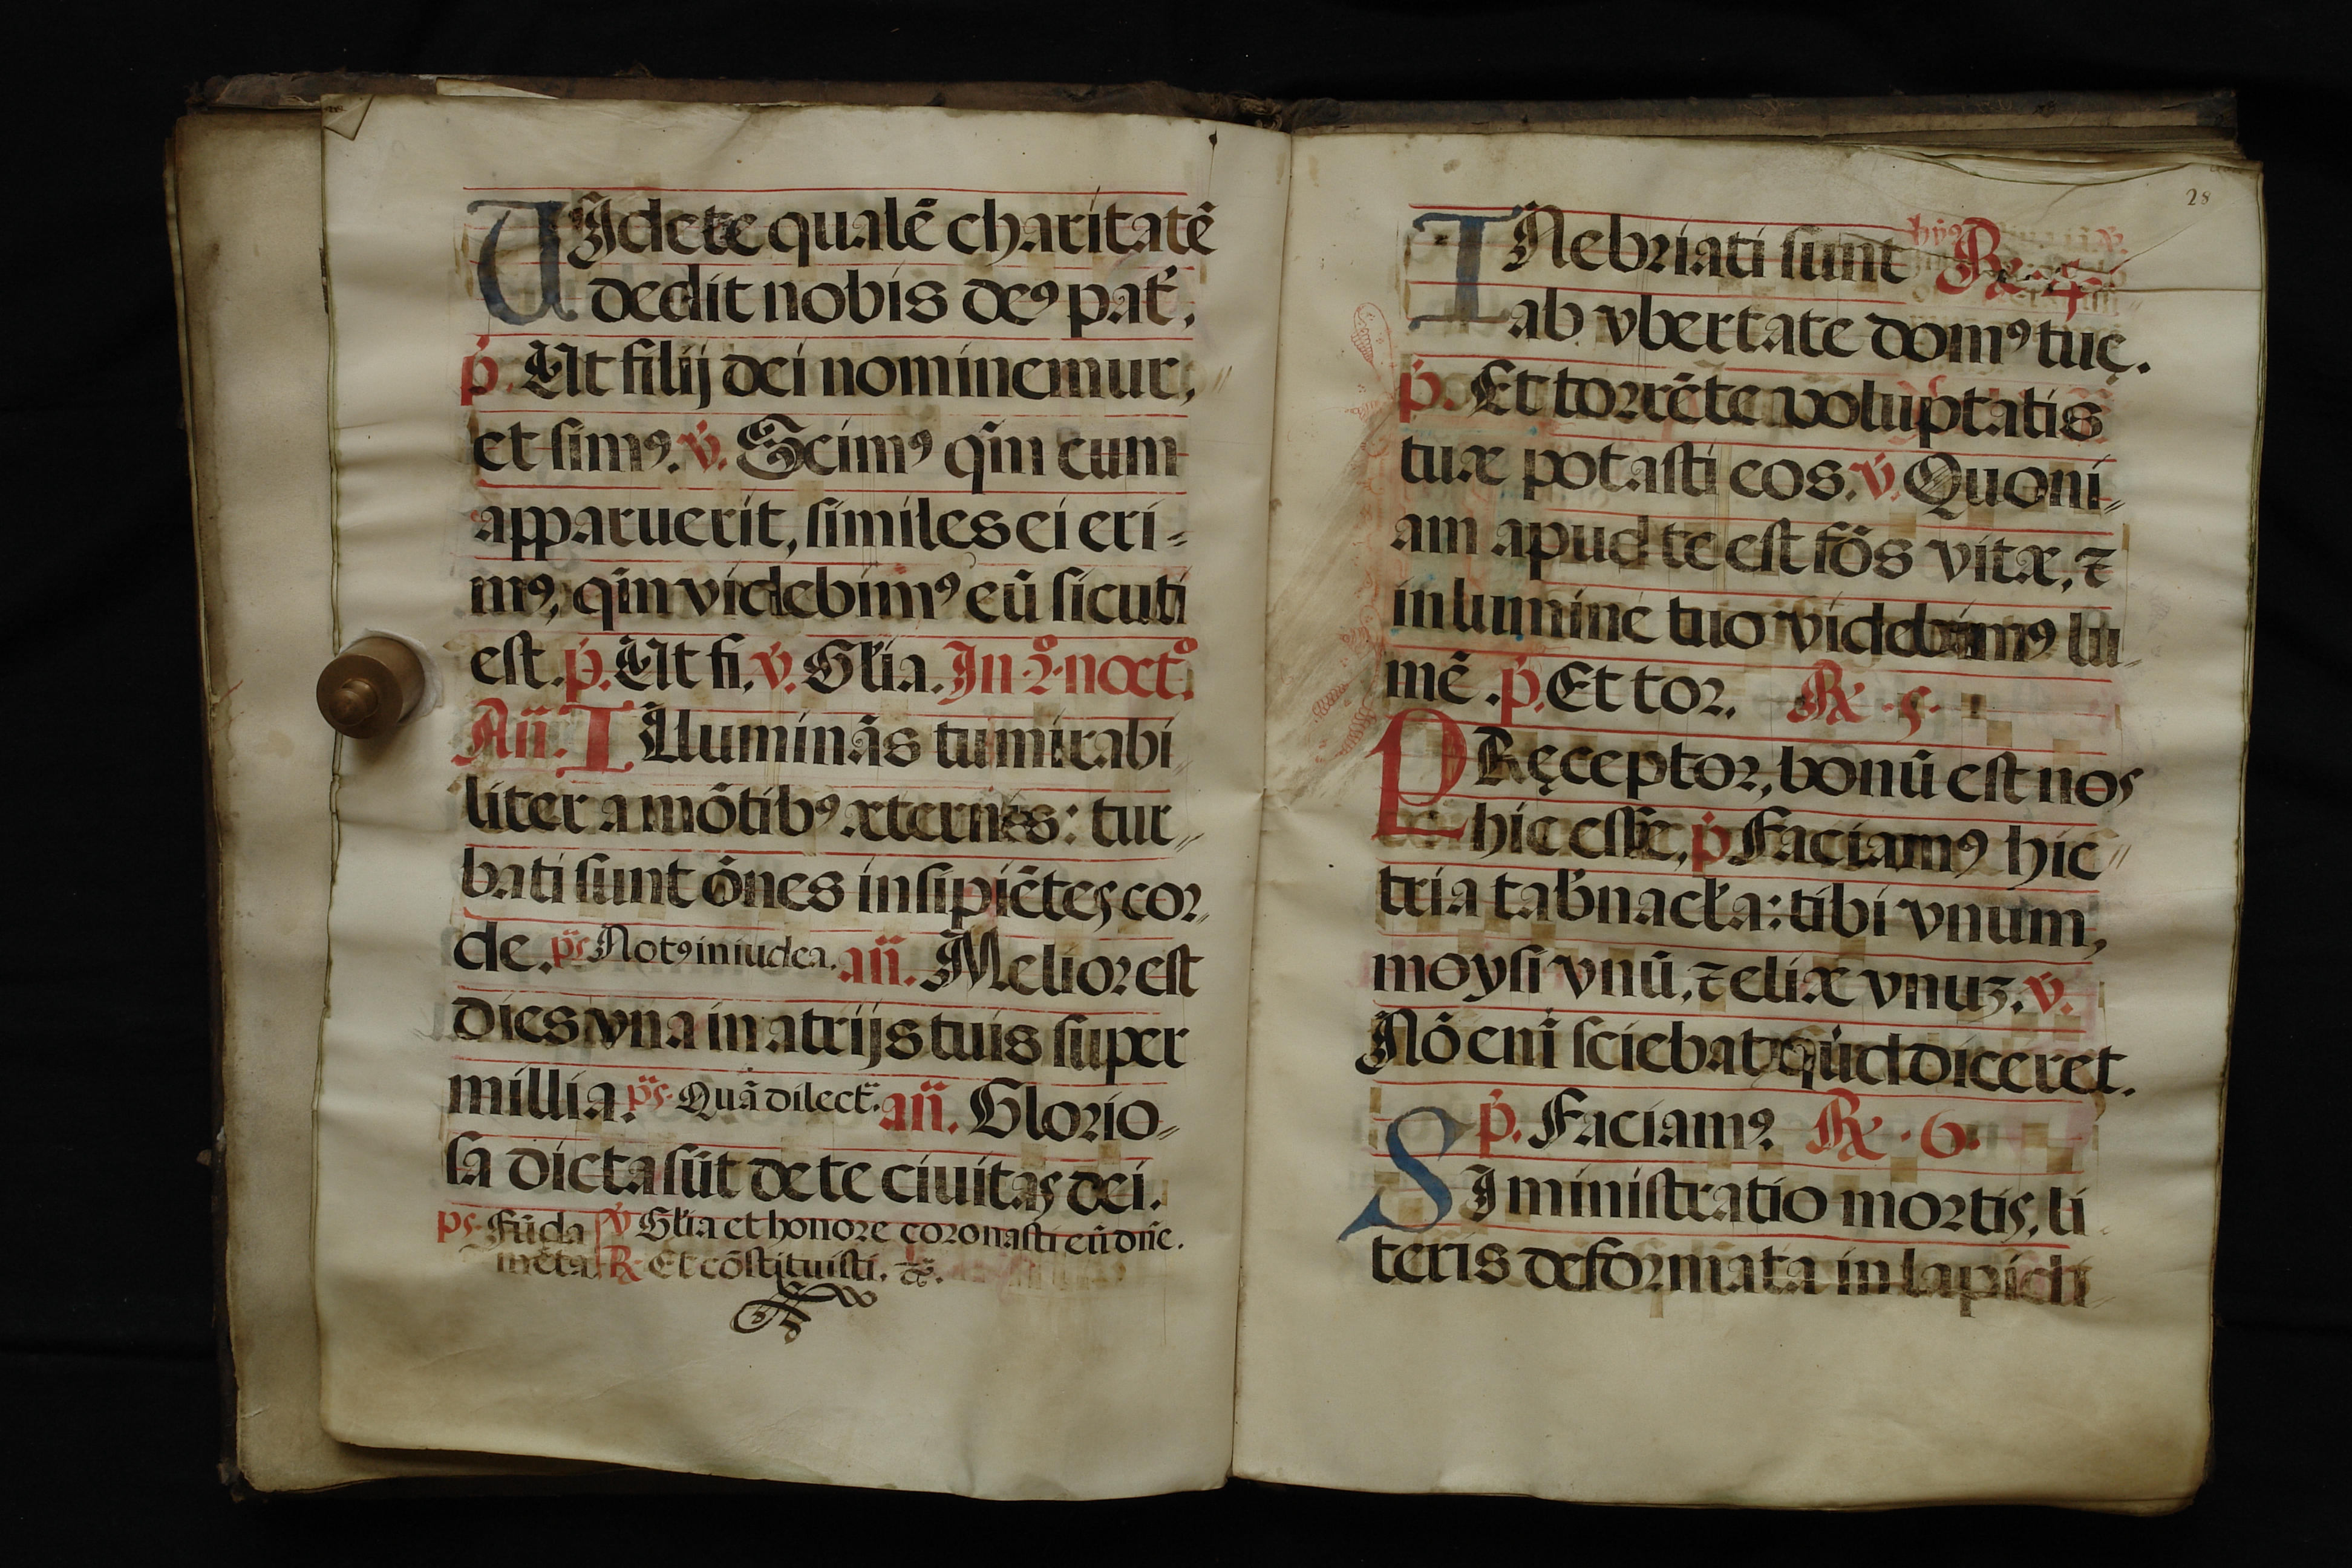 VIdete qualē charitatē
dedit nobis deꝰ pať,
p̄. Ut filij dei nominemur,
et simꝰ. v̄. Scimꝰ qm̄ cum
apparuerit, similes ei eri-
mꝰ, qm̄ videbimꝰ eū sicuti
est. p̄. Ut fi. v̄. Gľia. In. 2.º noctº.
Añ. Illuminās tu mirabi
liter a mōtibꝰ æternis: tur-
bati sunt ōnes insipiētes cor-
de. ps. Notꝰ in iudea. añ. Melior est
dies vna in atrijs tuis super
millia. ps. Quā dilect. añ. Glorio-
sa dicta sūt de te ciuitas dei.
ps. Fūda v̄ Gľia et honore coronasti eū dn̄e.
mēta. ℟. Et cōstituisti. &c.
28
INebriati sunt ℟. 4
ab vbertate domꝰ tuę.
p̄. Et torrēte voluptatis
tuæ potasti eos. v̄. Quoni-
am apud te est fōs vitæ, ⁊
in lumine tuo videbimꝰ lu-
mē. p̄. Et tor. ℟. 5.
PRęceptor, bonū est nos
hic esse, p̄ Faciamꝰ hic
tria tab̄nacľa: tibi vnum,
moysi vnū, ⁊ eliæ vnuꝫ. v̄.
Nō enī sciebat qūid diceret.
p̄. Faciamꝰ ℟. 6.
SI ministratio mortis, li
teris deformata in lapidi